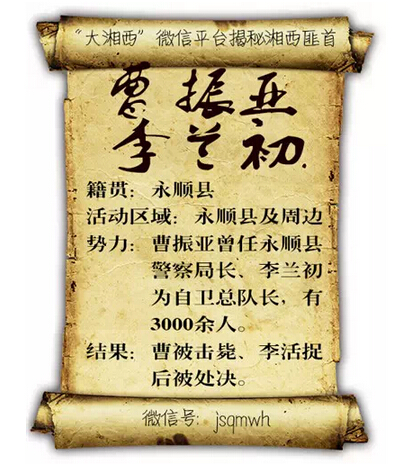 “大湘西”微信平台揭秘湘西匪首
曹振亚
李兰初.
籍贯：永顺县
活动区域：永顺县及周边
势力：曹振亚曾任永顺县
警察局长、李兰初
为自卫总队长，有
3000余人。
结果：曹被击毙、李活捉
后被处决。
微信号：jsqmwh